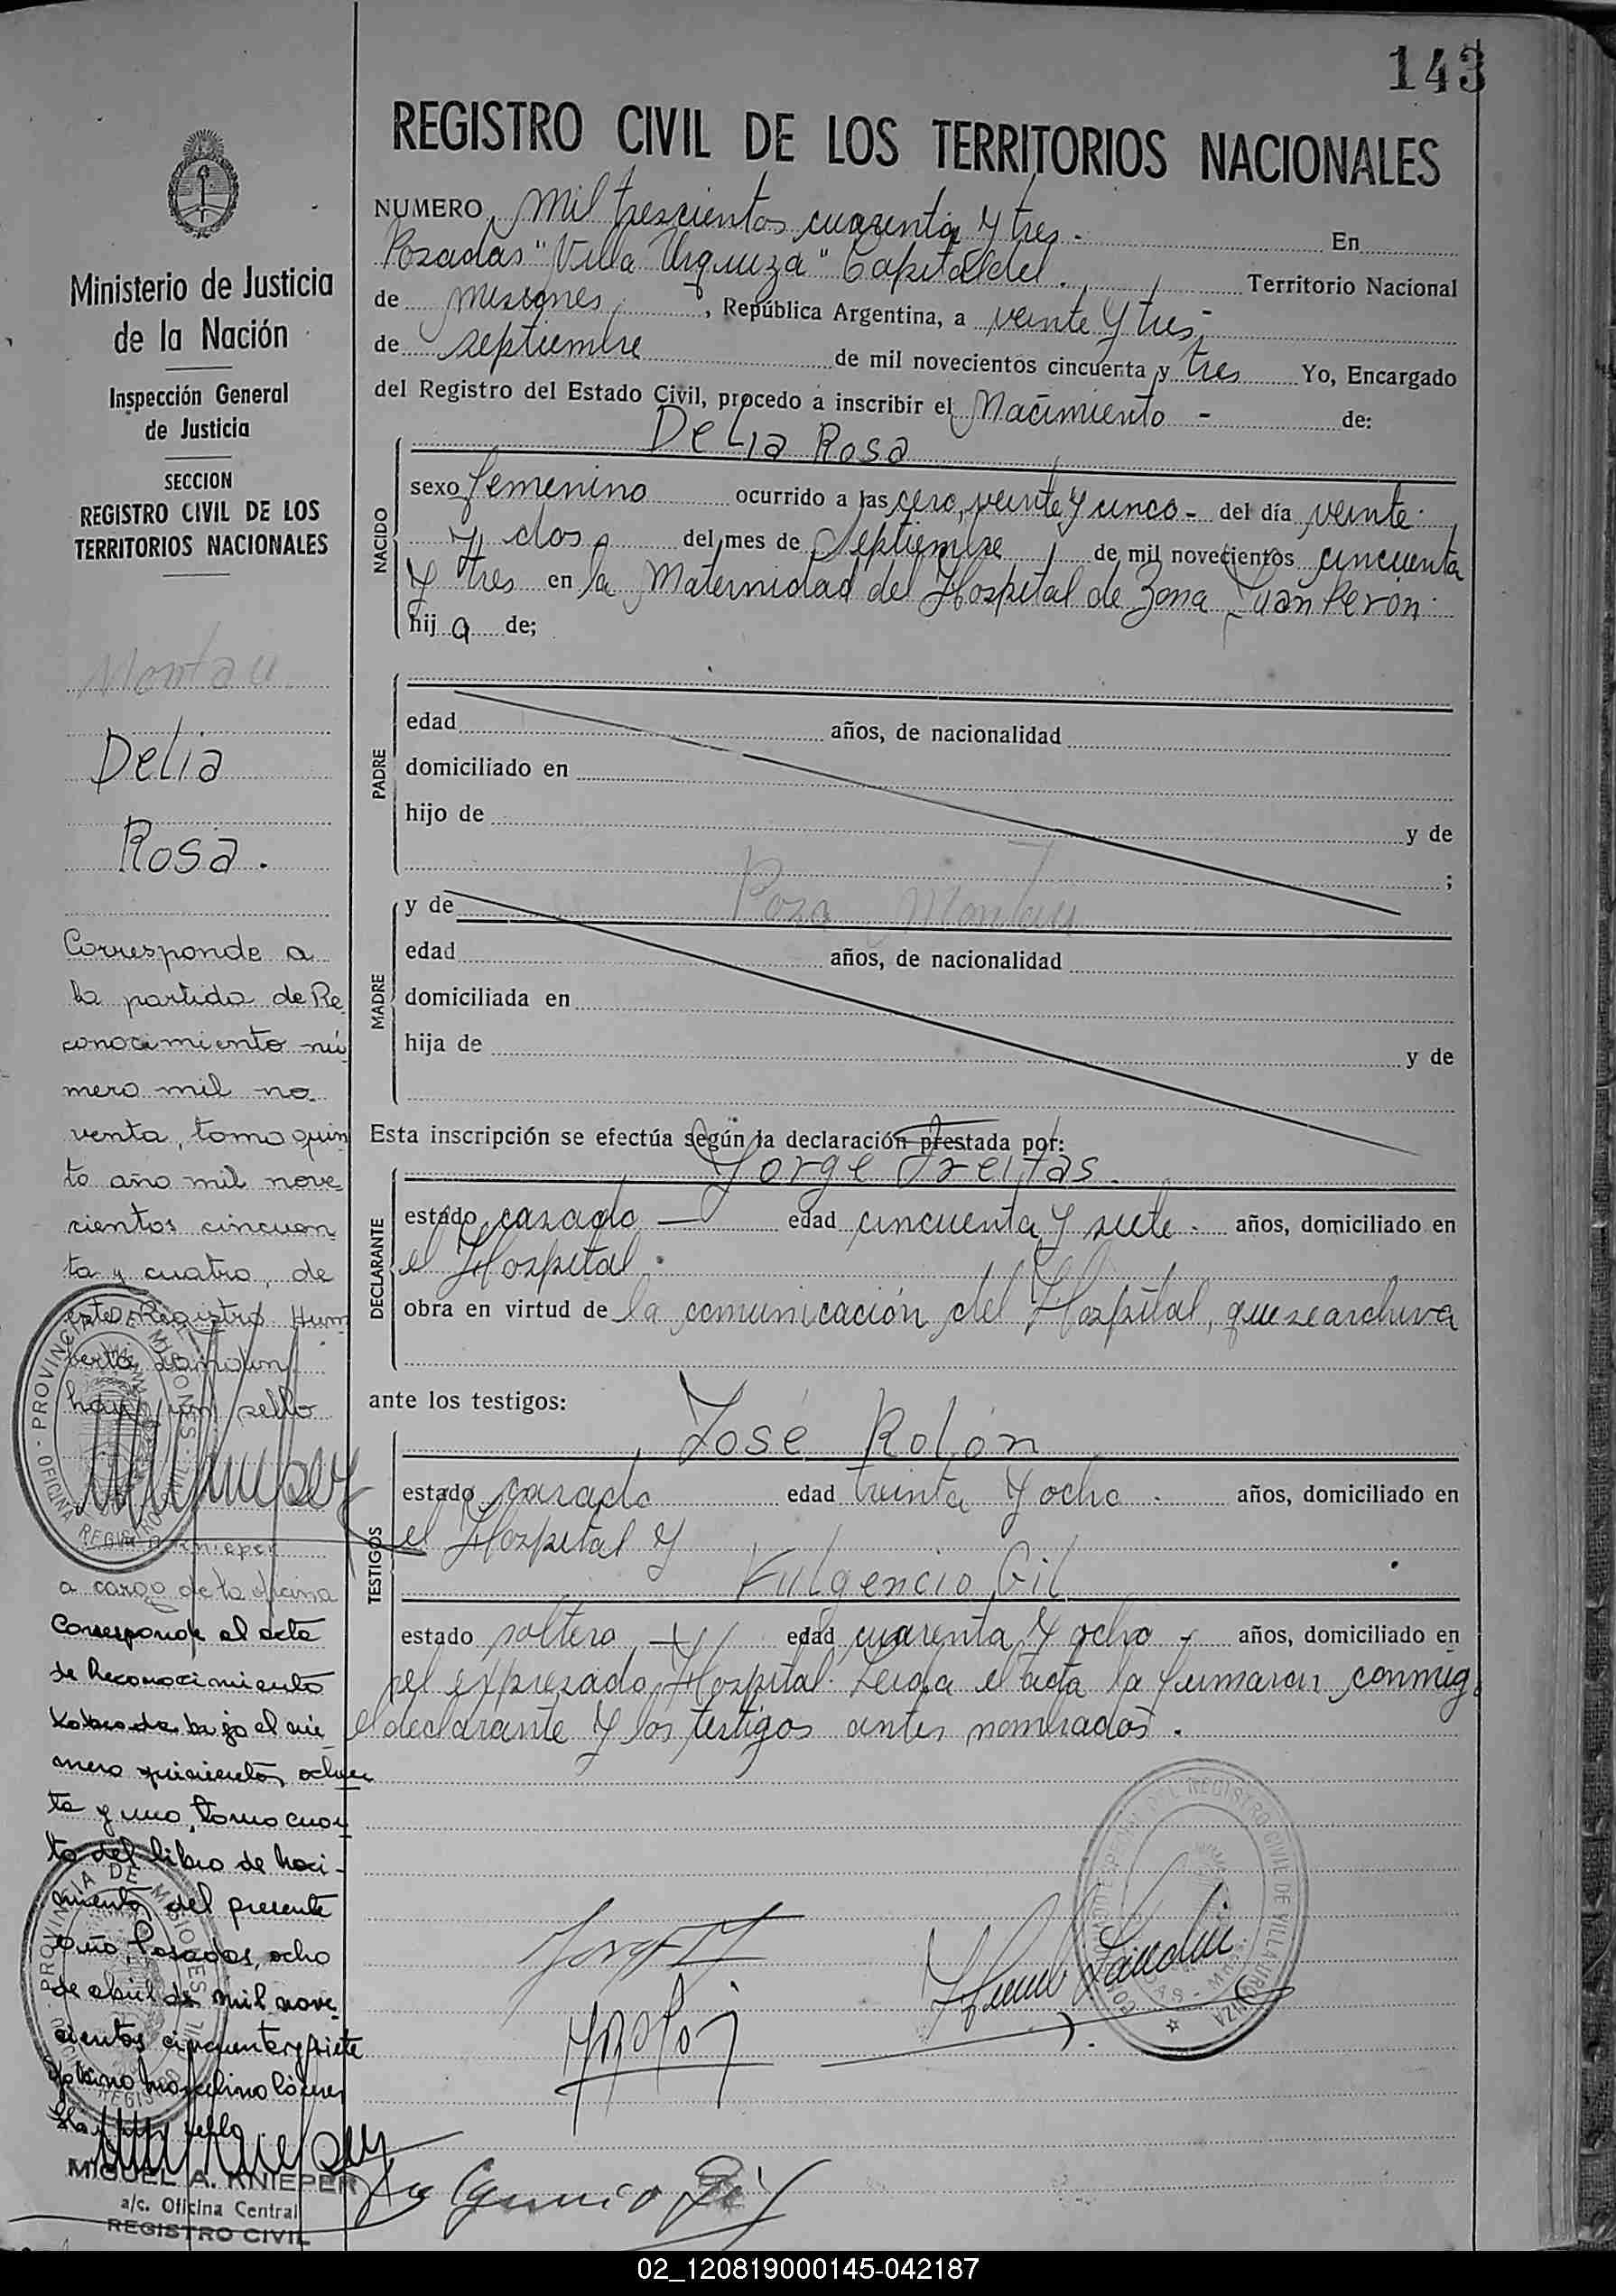 143
REGISTRO CIVIL DE LOS TERRITORIOS NACIONALES
NUMERO mil trescientos cuarenta y tres.- En
Posadas "Villa Urquiza" Capital del Territorio Nacional
de misiones, República Argentina, a veinte y tres,-
de septiembre de mil novecientos cincuenta y tres Yo, Encargado
del Registro del Estado Civil, procedo a inscribir el Nacimiento - de:
Delia Rosa
NACIDO
sexo femenino ocurrido a las cero, veinte y cinco - del día veinte
y dos del mes de Septiembre de mil novecientos cincuenta
y tres en la Maternidad del Hospital de Zona Juan Perón.
hij a de;
PADRE
edad años, de nacionalidad
domiciliado en
hijo de y de
;
MADRE
y de Rosa
edad años, de nacionalidad
domiciliada en
hija de y de
Esta inscripción se efectúa según la declaración prestada por:
Jorge Freitas.
DECLARANTE
estado casado — edad cincuenta y siete. años, domiciliado en
el Hospital.
obra en virtud de la comunicación del Hospital, que se archiva
ante los testigos:
José Rolón
TESTIGOS
estado casado edad treinta y ocho. años, domiciliado en
el Hospital y
Fulgencio Gil
estado soltero edad cuarenta y ocho - años, domiciliado en
el expresado Hospital. Leída el acta la firmaron conmigo
el declarante y los testigos antes nombrados.
Ministerio de Justicia
de la Nación
Inspección General
de Justicia
SECCION
REGISTRO CIVIL DE LOS
TERRITORIOS NACIONALES
Delia
Rosa.
Corresponde a
la partida de Re
conocimiento nú
mero mil no
venta, tomo quin
to año mil nove
cientos cincuen
ta y cuatro, de
este Registro Hum
berto
hay un sello
a cargo de la oficina
Corresponde al acta
de Reconocimiento
bajo el nú
mero quinientos ochen
ta y uno, tomo cuar
to del libro de Naci-
mientos del presente
año, Posadas, ocho
de abril de mil nove
cientos cincuenta y siete
MIGUEL A. KNIEPER
a/c. Oficina Central
REGISTRO CIVIL
02_120819000145-042187